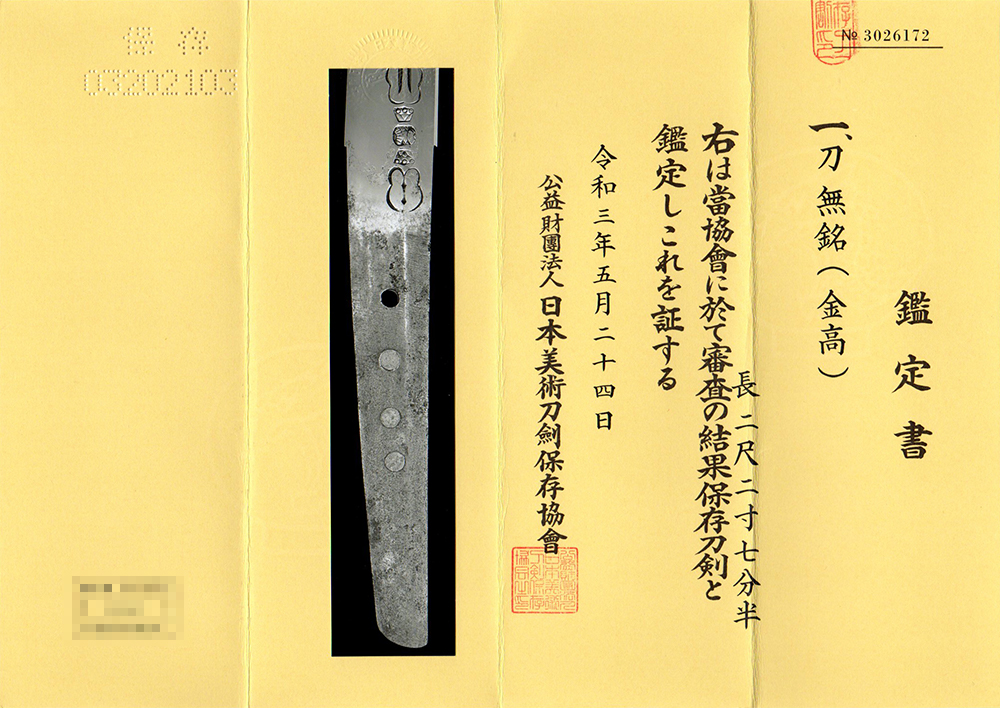 № 3026172
鑑定書
一、刀 無銘(金高)
長 二尺二寸七分半
右は當協會に於て審査の結果保存刀剣と
鑑定しこれを証する
令和三年五月二十四日
公益財團法人 日本美術刀劍保存協會
保存
03202103